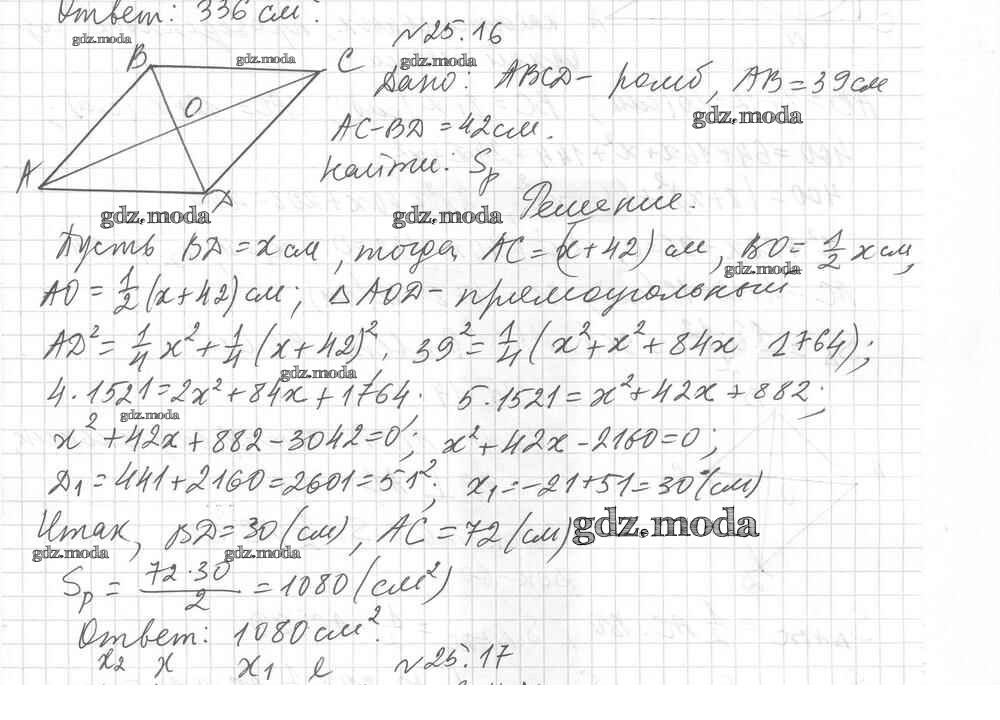 Ответ: 336 см².
gdz.moda
№25.16
B
gdz.moda
C
gdz.moda
Дано: ABCD - ромб, AB = 39 см
O
gdz.moda
AC-BD = 42 см.
Найти: Sр
A
D
gdz.moda
gdz.moda
Решение.
Пусть BD = x см, тогда AC = (x+42) см, BO = 1/2 x см,
gdz.moda
AO = 1/2 (x+42) см; △AOD - прямоугольный
AD² = 1/4 x² + 1/4 (x+42)². 39² = 1/4 (x²+x²+84x 1764);
gdz.moda
4·1521=2x²+84x+1764; 5·1521=x²+42x+882;
gdz.moda
x²+42x+882-3042=0; x²+42x-2160=0;
D₁=441+2160=2601=51²; x₁=-21+51=30 (см)
Итак, BD=30 (см), AC=72 (см)
gdz.moda
gdz.moda
gdz.moda
Sр = 72·30/2 = 1080 (см²)
Ответ: 1080 см².
№25.17